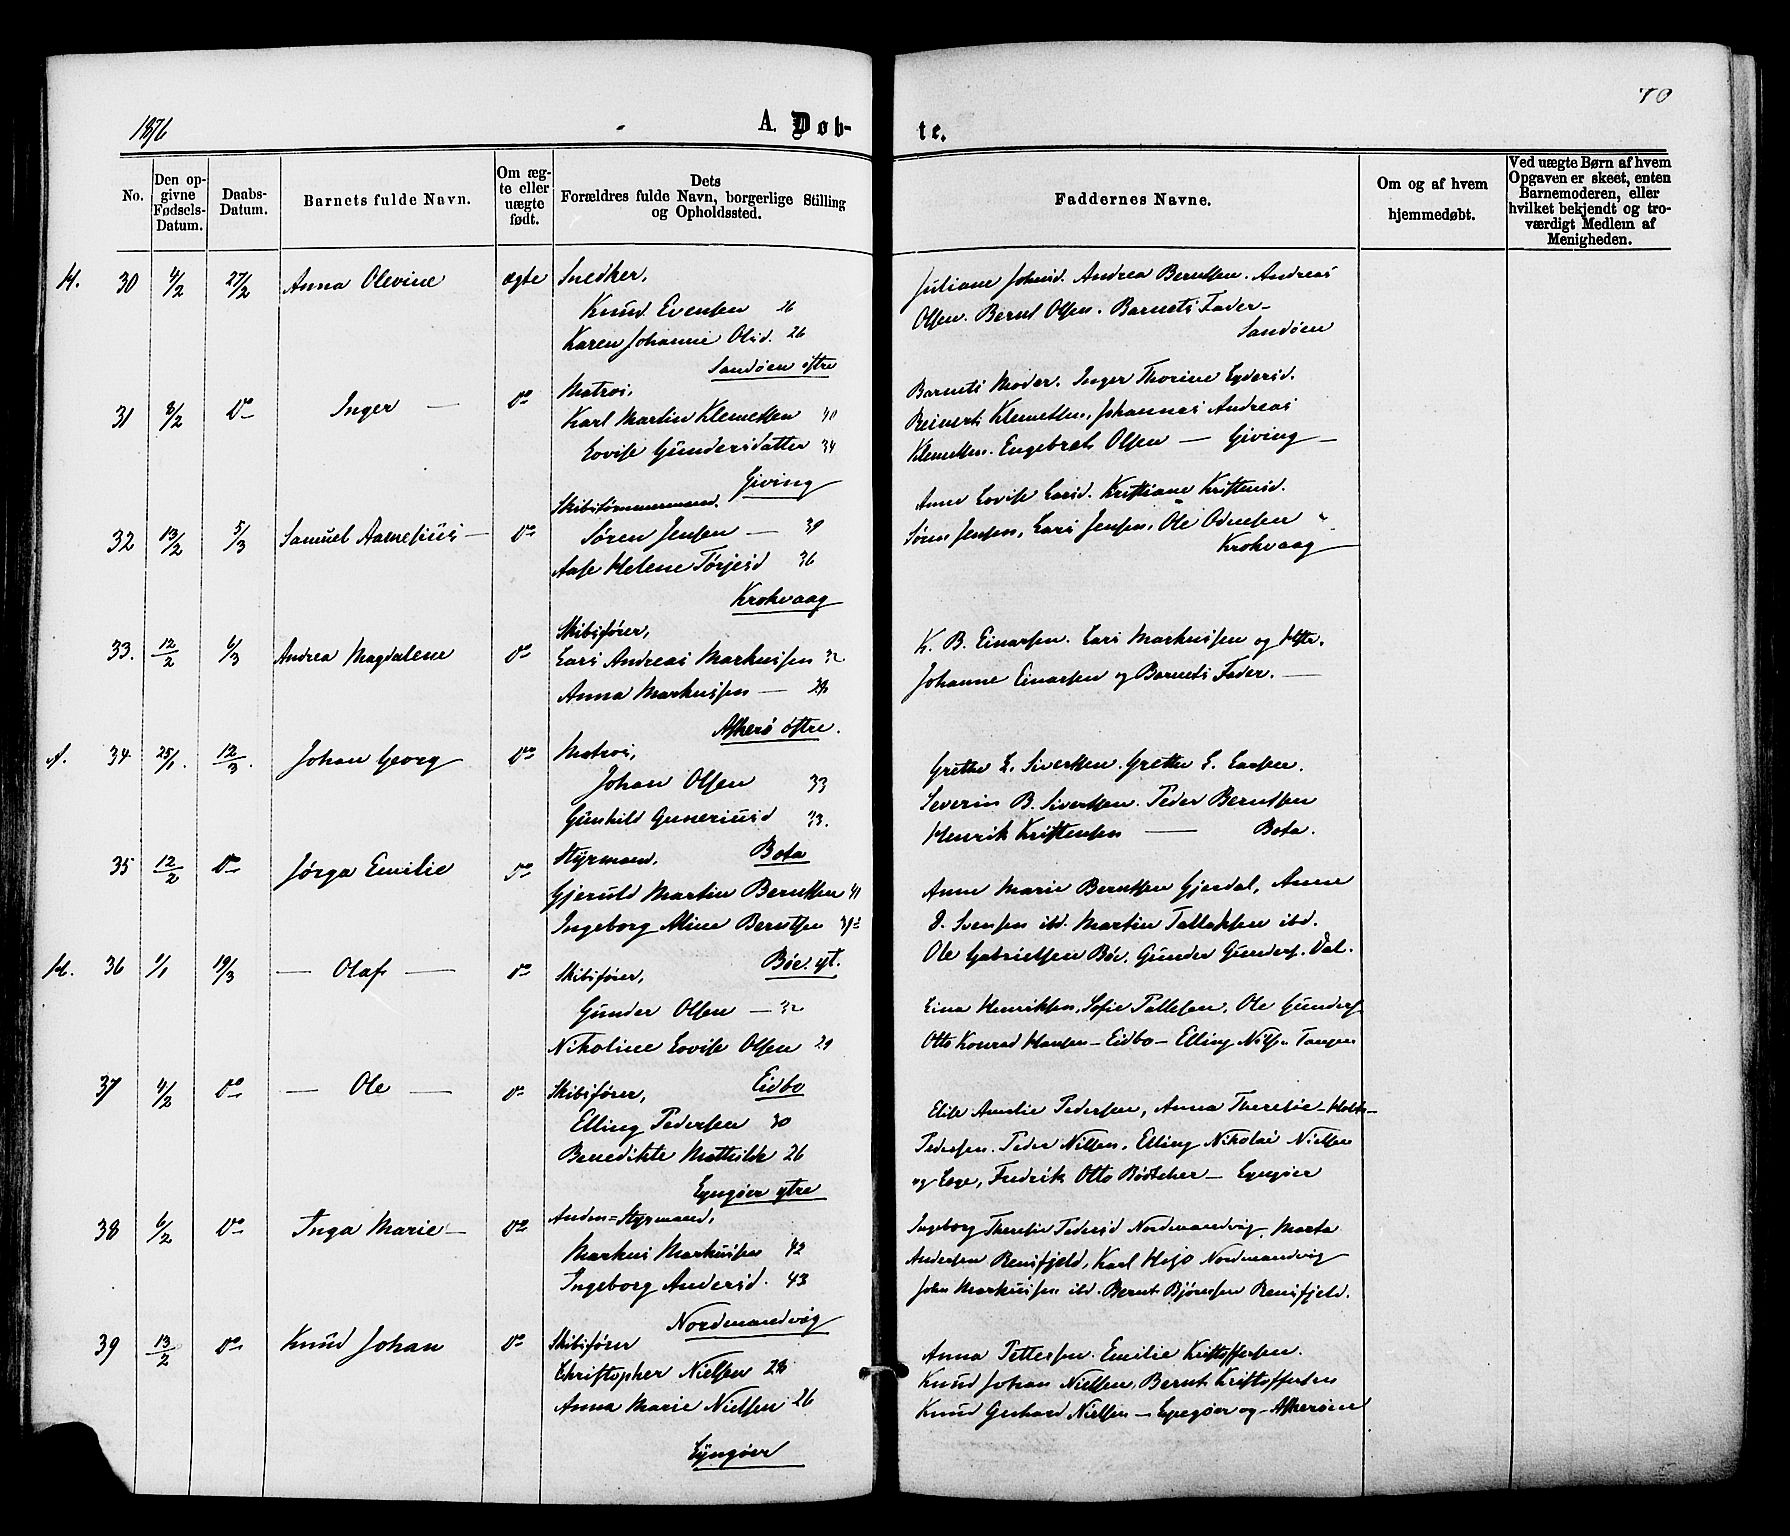 1876
A. Døb-
te.
70
No.
Den op-
givne
Fødsels-
Datum.
Daabs-
Datum.
Barnets fulde Navn.
Om æg-
te eller
uægte
født.
Dets
Forældres fulde Navn, borgerlige Stilling
og Opholdssted.
Faddernes Navne.
Om og af hvem
hjemmedøbt.
Ved uægte Børn af hvem
Opgaven er skeet, enten
Barnemoderen, eller
hvilket bekjendt og tro-
værdigt Medlem af
Menigheden.
H. 30 4/2 27/2 Anna Olevine ægte Snedker,
Knud Evensen 26
Karen Johanne Olsd. 26
Sandøen østre
Juliane Johnsd. Andrea Berntsen. Andreas
Olsen. Bernt Olsen. Barnets Fader —
Sandøen
31 8/2 Do Inger — do Matros,
Karl Martin Klemetsen 40
Lovise Gundersdatter 34
Giving
Barnets Moder. Inger Thorine Eydersd.
Reinert Klemetsen, Johannes Andreas
Klemetsen. Engebret Olsen — Giving —
32 13/2 5/3 Samuel Aanesius — do Skibstømmermand.
Søren Jensen — 39
Aase Helene Tørjesd 36
Krokvaag
Anne Lovise Larsd. Kristiane Kristensd.
Søren Jensen, Lars Jensen, Ole Odensen
Krokvaag
33. 12/2 6/3 Andrea Magdalene do Skibsfører,
Lars Andreas Markussen 32
Anna Markussen — 28
Askerö östre.
K. B. Einarsen. Lars Markussen og Hstr.
Johanne Einarsen og Barnets Fader. —
A. 34 25/1. 12/3. Johan Georg do Matros,
Johan Olsen 33
Gunhild Guneriusd 33.
Bota
Grethe E. Sivertsen. Grethe E. Larsen.
Severin B. Sivertsen. Peder Berntsen
Henrik Kristensen — Bota.
35 12/2 Do Jørga Emilie do Styrmand,
Gjeruld Martin Berntsen 41
Ingeborg Aline Berntsen
Böe. yt.
Anne Marie Berntsen Gjerdal, Anne
D. Svensen ibd. Martin Tallaksen ibd.
Ole Gabrielsen Böe. Gunder Gunders. Dal.
H. 36 1/1 19/3 — Olaf — do Skibsfører,
Gunder Olsen — 32
Nikoline Lovise Olsen 29
Eidbo
Lina Henriksen, Sofie Tallesen, Ole Gunders
Otto Konrad Hansen — Eidbo — Elling Nils. Tangen
37 4/2 do — Ole — do Skibsfører,
Elling Pedersen 30
Benedikte Mathilde 26
Lyngøer ytre
Elise Amalie Pedersen, Anna Theresie Holst-
Pedersen. Peder Nilsen. Elling Nikolai Nielsen
og Fredrik Otto Bödtcher — Lyngøer
38 6/2 Do Inga Marie — do Anden=Styrmand,
Markus Markussen 42
Ingeborg Andersd. 43
Nordmandvig
Ingeborg Theresie Pedersd Nordmandvig. Marta
Andersen Rensfjeld, Karl Hejo Nordmandvig
John Markussen ibd. Bernt Björnsen Rensfjeld.
39 13/2 do Knud Johan do Skibsfører
Christopher Nielsen 28
Anna Marie Nielsen 26
Lyngøer
Anna Pettersen. Emilie Kristoffersen.
Knud Johan Nielsen, Bernt Kristoffersen
Knud Gerhard Nielsen — Lyngøer og Askerøen